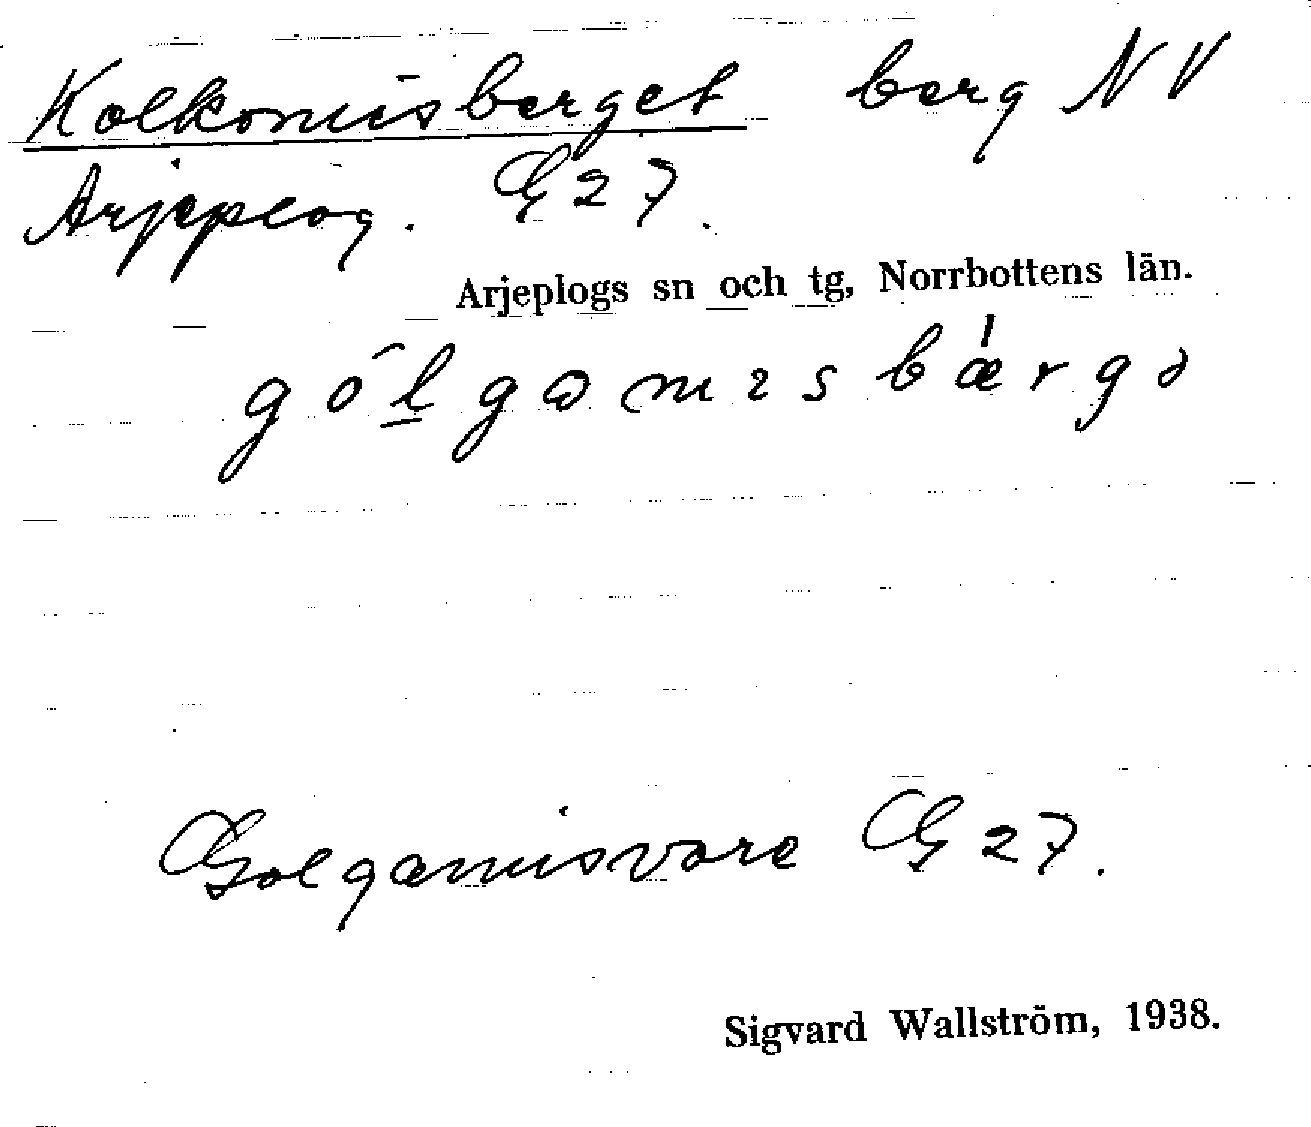 Kolkomisberget berg NV
Arjeplog. G 27.
Arjeplogs sn och tg, Norrbottens län.
Golgamisvare G 27.
Sigvard Wallström, 1938.